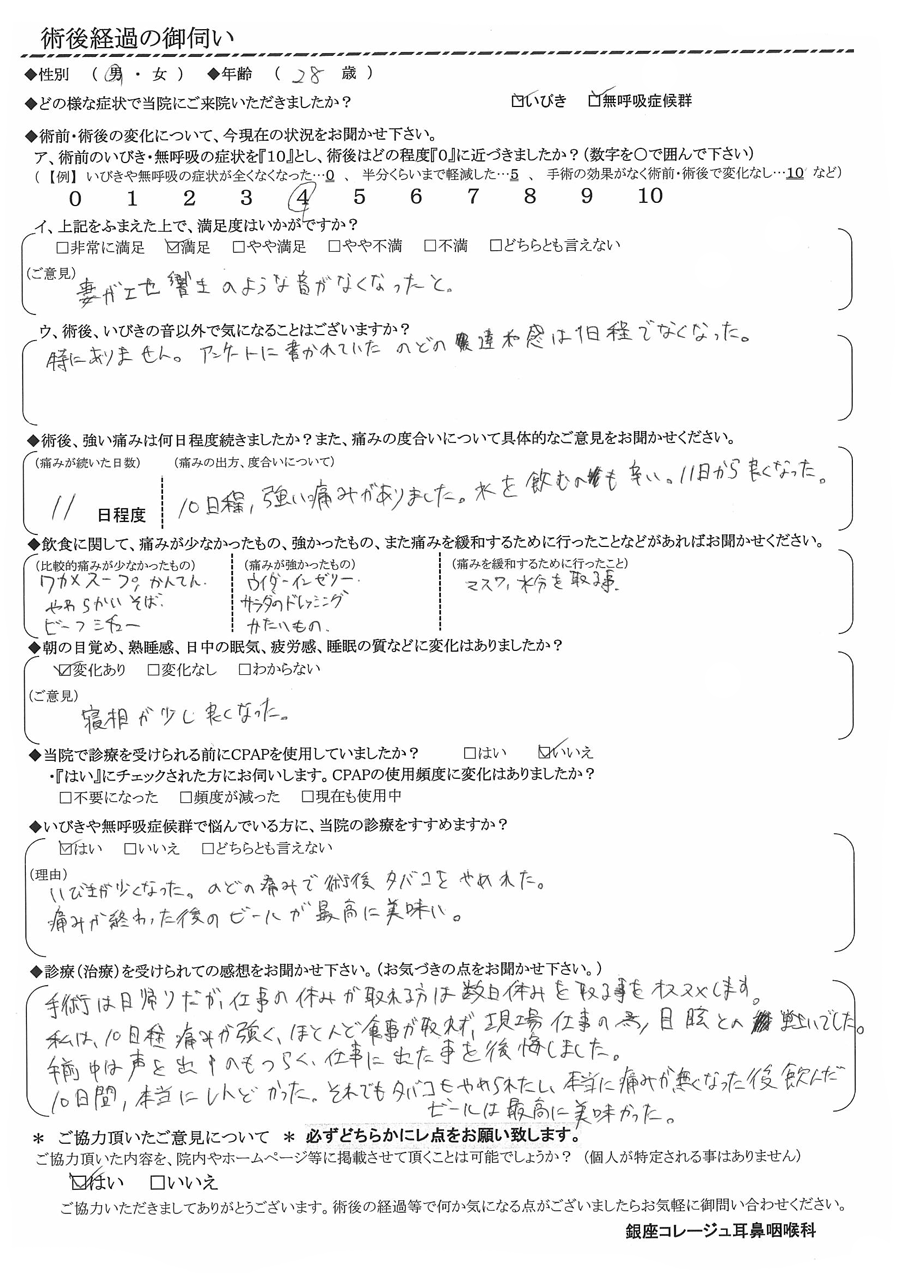 術後経過の御伺い
◆性別 （ 男 ・ 女 ） ◆年齢 （ 28 歳 ）
◆どの様な症状で当院にご来院いただきましたか？ ☑いびき ☑無呼吸症候群
◆術前・術後の変化について、今現在の状況をお聞かせ下さい。
ア、術前のいびき・無呼吸の症状を『10』とし、術後はどの程度『0』に近づきましたか？（数字を○で囲んで下さい）
（【例】 いびきや無呼吸の症状が全くなくなった…0 、 半分くらいまで軽減した…5 、 手術の効果がなく術前・術後で変化なし…10 など）
0 1 2 3 4 5 6 7 8 9 10
イ、上記をふまえた上で、満足度はいかがですか？
□非常に満足 ☑満足 □やや満足 □やや不満 □不満 □どちらとも言えない
(ご意見)
妻が工セ響生のような音がなくなったと。
ウ、術後、いびきの音以外で気になることはございますか？
特にありません。アンケートに書かれていた のどの違和感は1日程でなくなった。
◆術後、強い痛みは何日程度続きましたか？また、痛みの度合いについて具体的なご意見をお聞かせください。
(痛みが続いた日数) (痛みの出方、度合いについて)
11 日程度 10日程、強い痛みがありました。水を飲むのも辛い。11日から良くなった。
◆飲食に関して、痛みが少なかったもの、強かったもの、また痛みを緩和するために行ったことなどがあればお聞かせください。
(比較的痛みが少なかったもの) (痛みが強かったもの) (痛みを緩和するために行ったこと)
ワカメスープ、かんてん、 ウイダーインゼリー、 マスク、水分を取る事。
やわらかいそば、 サラダのドレッシング
ビーフシチュー かたいもの。
◆朝の目覚め、熟睡感、日中の眠気、疲労感、睡眠の質などに変化はありましたか？
☑変化あり □変化なし □わからない
(ご意見)
寝相が少し良くなった。
◆当院で診療を受けられる前にCPAPを使用していましたか？ □はい ☑いいえ
・『はい』にチェックされた方にお伺いします。CPAPの使用頻度に変化はありましたか？
□不要になった □頻度が減った □現在も使用中
◆いびきや無呼吸症候群で悩んでいる方に、当院の診療をすすめますか？
☑はい □いいえ □どちらとも言えない
(理由)
いびきが少くなった。のどの痛みで術後タバコをやめれた。
痛みが終わった後のビールが最高に美味い。
◆診療（治療）を受けられての感想をお聞かせ下さい。（お気づきの点をお聞かせ下さい。）
手術は日帰りだが、仕事の休みが取れる方は数日休みを取る事をオススメします。
私は、10日程痛みが強く、ほとんど食事が取れず、現場仕事の為、目眩との戦いでした。
術中は声を出すのもつらく、仕事に出た事を後悔しました。
10日間、本当にしんどかった。それでもタバコもやめられたし、本当に痛みが無くなった後飲んだ
ビールは最高に美味かった。
＊ ご協力頂いたご意見について ＊ 必ずどちらかにレ点をお願い致します。
ご協力頂いた内容を、院内やホームページ等に掲載させて頂くことは可能でしょうか？ （個人が特定される事はありません）
☑はい □いいえ
ご協力いただきましてありがとうございます。術後の経過等で何か気になる点がございましたらお気軽に御問い合わせください。
銀座コレージュ耳鼻咽喉科